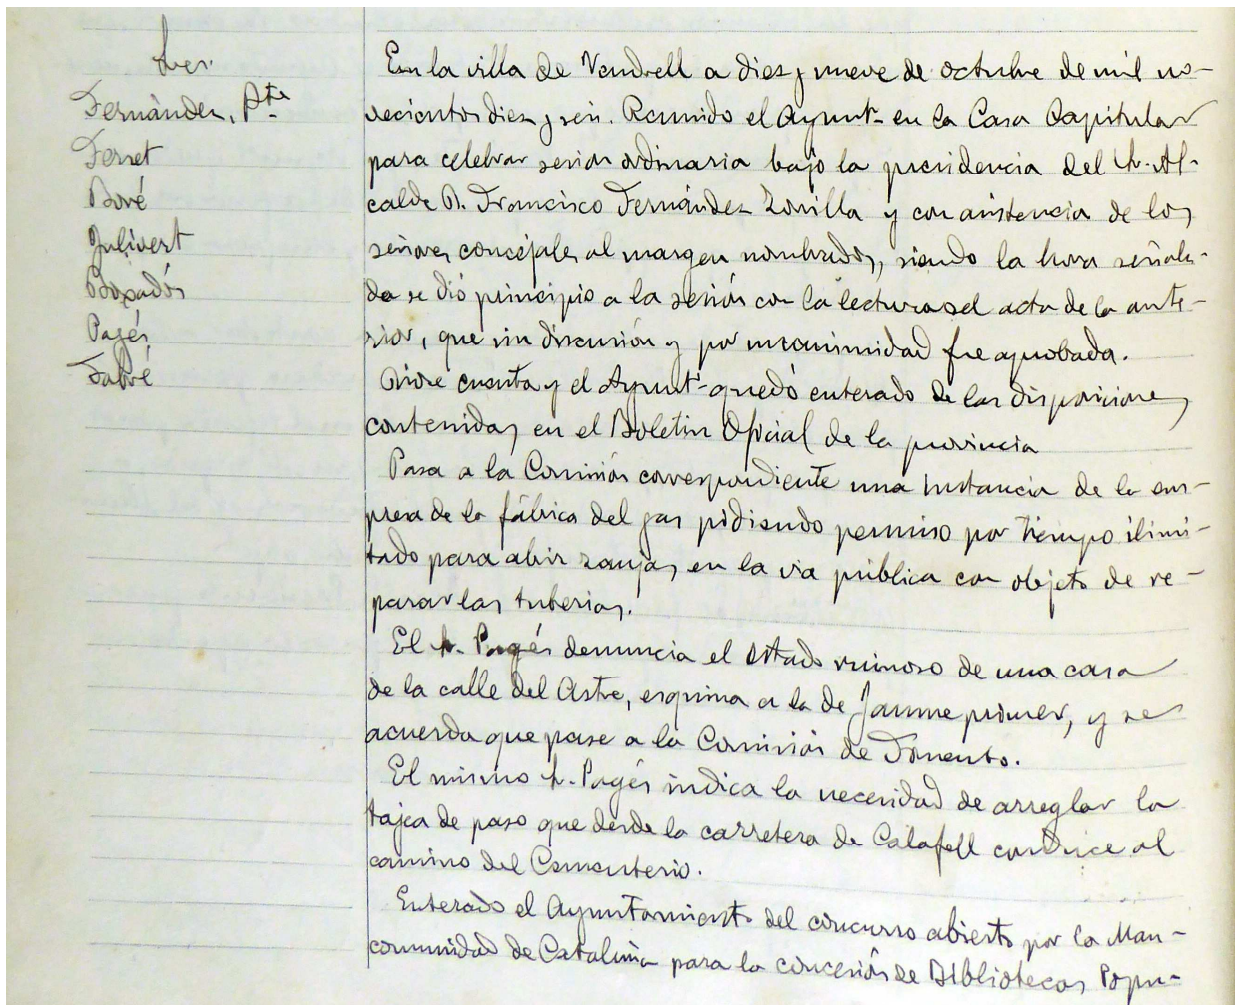 Sres.
Fernández, Pte
Ferret
Bové
Julivert
Boxadós
Pagés
Fabré
En la villa de Vendrell a diez y nueve de octubre de mil no-
vecientos diez y seis. Reunido el Ayunt- en la Casa Capitular
para celebrar sesion ordinaria bajo la presidencia del Sr. Al-
calde D. Francisco Fernández Zorrilla y con asistencia de los
señores concejales al margen nombrados, siendo la hora señala-
da se dió principio a la sesión con la lectura del acta de la ante-
rior, que sin discusión y por unanimidad fue aprobada.
Dióse cuenta y el Ayunt- quedó enterado de las disposiciones
contenidas en el Boletin Oficial de la provincia
Pasa a la Comisión correspondiente una instancia de la em-
presa de la fábrica del gas pidiendo permiso por tiempo ilimi-
tado para abrir zanjas en la via pública con objeto de re-
parar las tuberias.
El Sr. Pagés denuncia el estado ruinoso de una casa
de la calle del Astre, esquina a la de Jaume primer, y se
acuerda que pase a la Comisión de Fomento.
El mismo Sr. Pagés indica la necesidad de arreglar la
tajea de paso que desde la carretera de Calafell conduce al
camino del Cementerio.
Enterado el Ayuntamiento del concurso abierto por la Man-
comunidad de Cataluña para la concesión de Bibliotecas Popu-